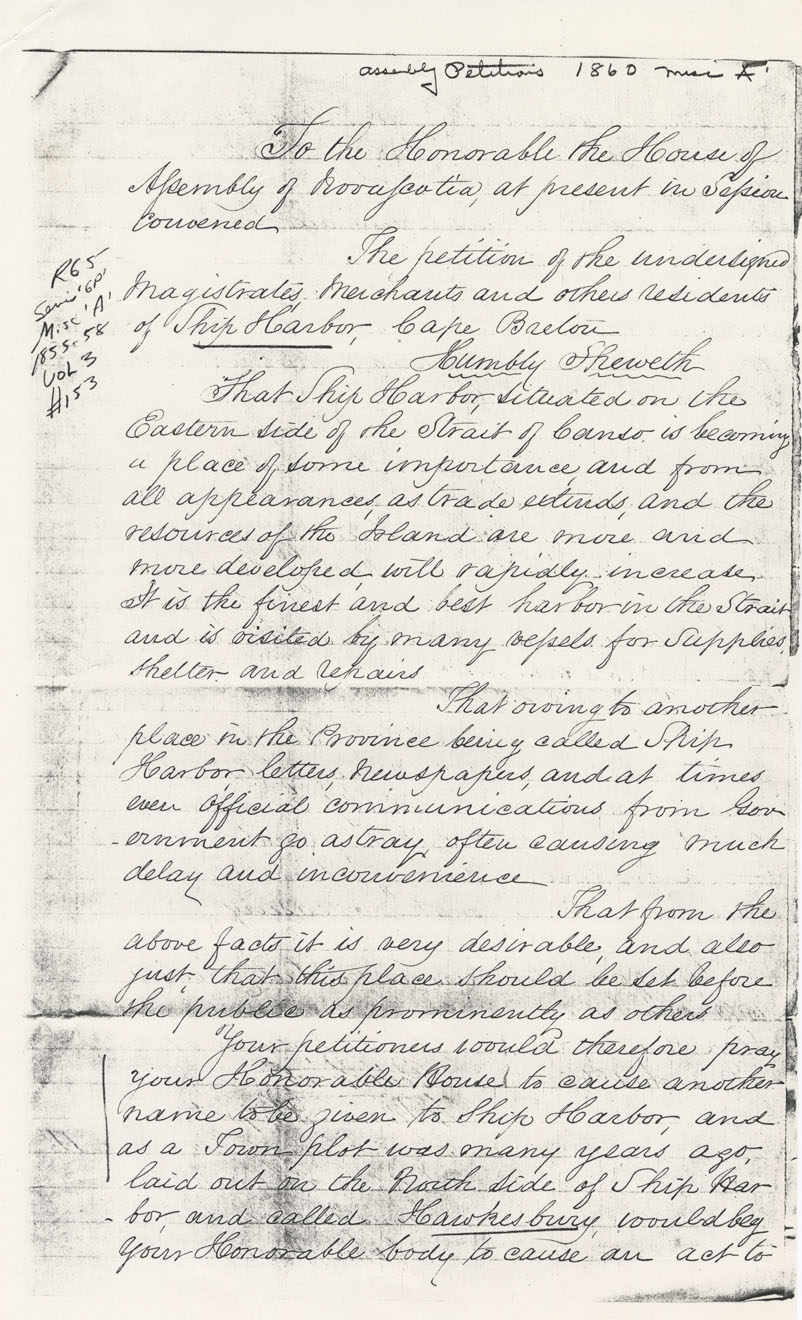 assembly Petitions 1860 misc A'
To the Honorable the House of
Assembly of Novascotia, at present in Session
convened
The petition of the undersigned
Magistrates, Merchants and others residents
of Ship Harbor, Cape Breton
Humbly Sheweth
That Ship Harbor, situated on the
Eastern side of the Strait of Canso is becoming
a place of some importance, and from
all appearances, as trade extends, and the
resources of the Island are more and
more developed, will rapidly increase.
It is the finest and best harbor in the Strait
and is visited by many vessels for Supplies,
shelter and repairs
That owing to another
place in the Province being called Ship
Harbor, letters, Newspapers, and at times
even official communications from Gov
-ernment go astray, often causing much
delay and inconvenience
That from the
above facts it is very desirable, and also
just, that this place should be set before
the public as prominently as others
Your petitioners would therefore pray
your Honorable House to cause another
name to be given to Ship Harbor, and
as a Town plot was many years ago,
laid out on the North side of Ship Har
-bor, and called Hawkesbury, would beg
your Honorable body to cause an act to
R65
Series 'GP'
Misc 'A'
1855-58
VOL 3
#153